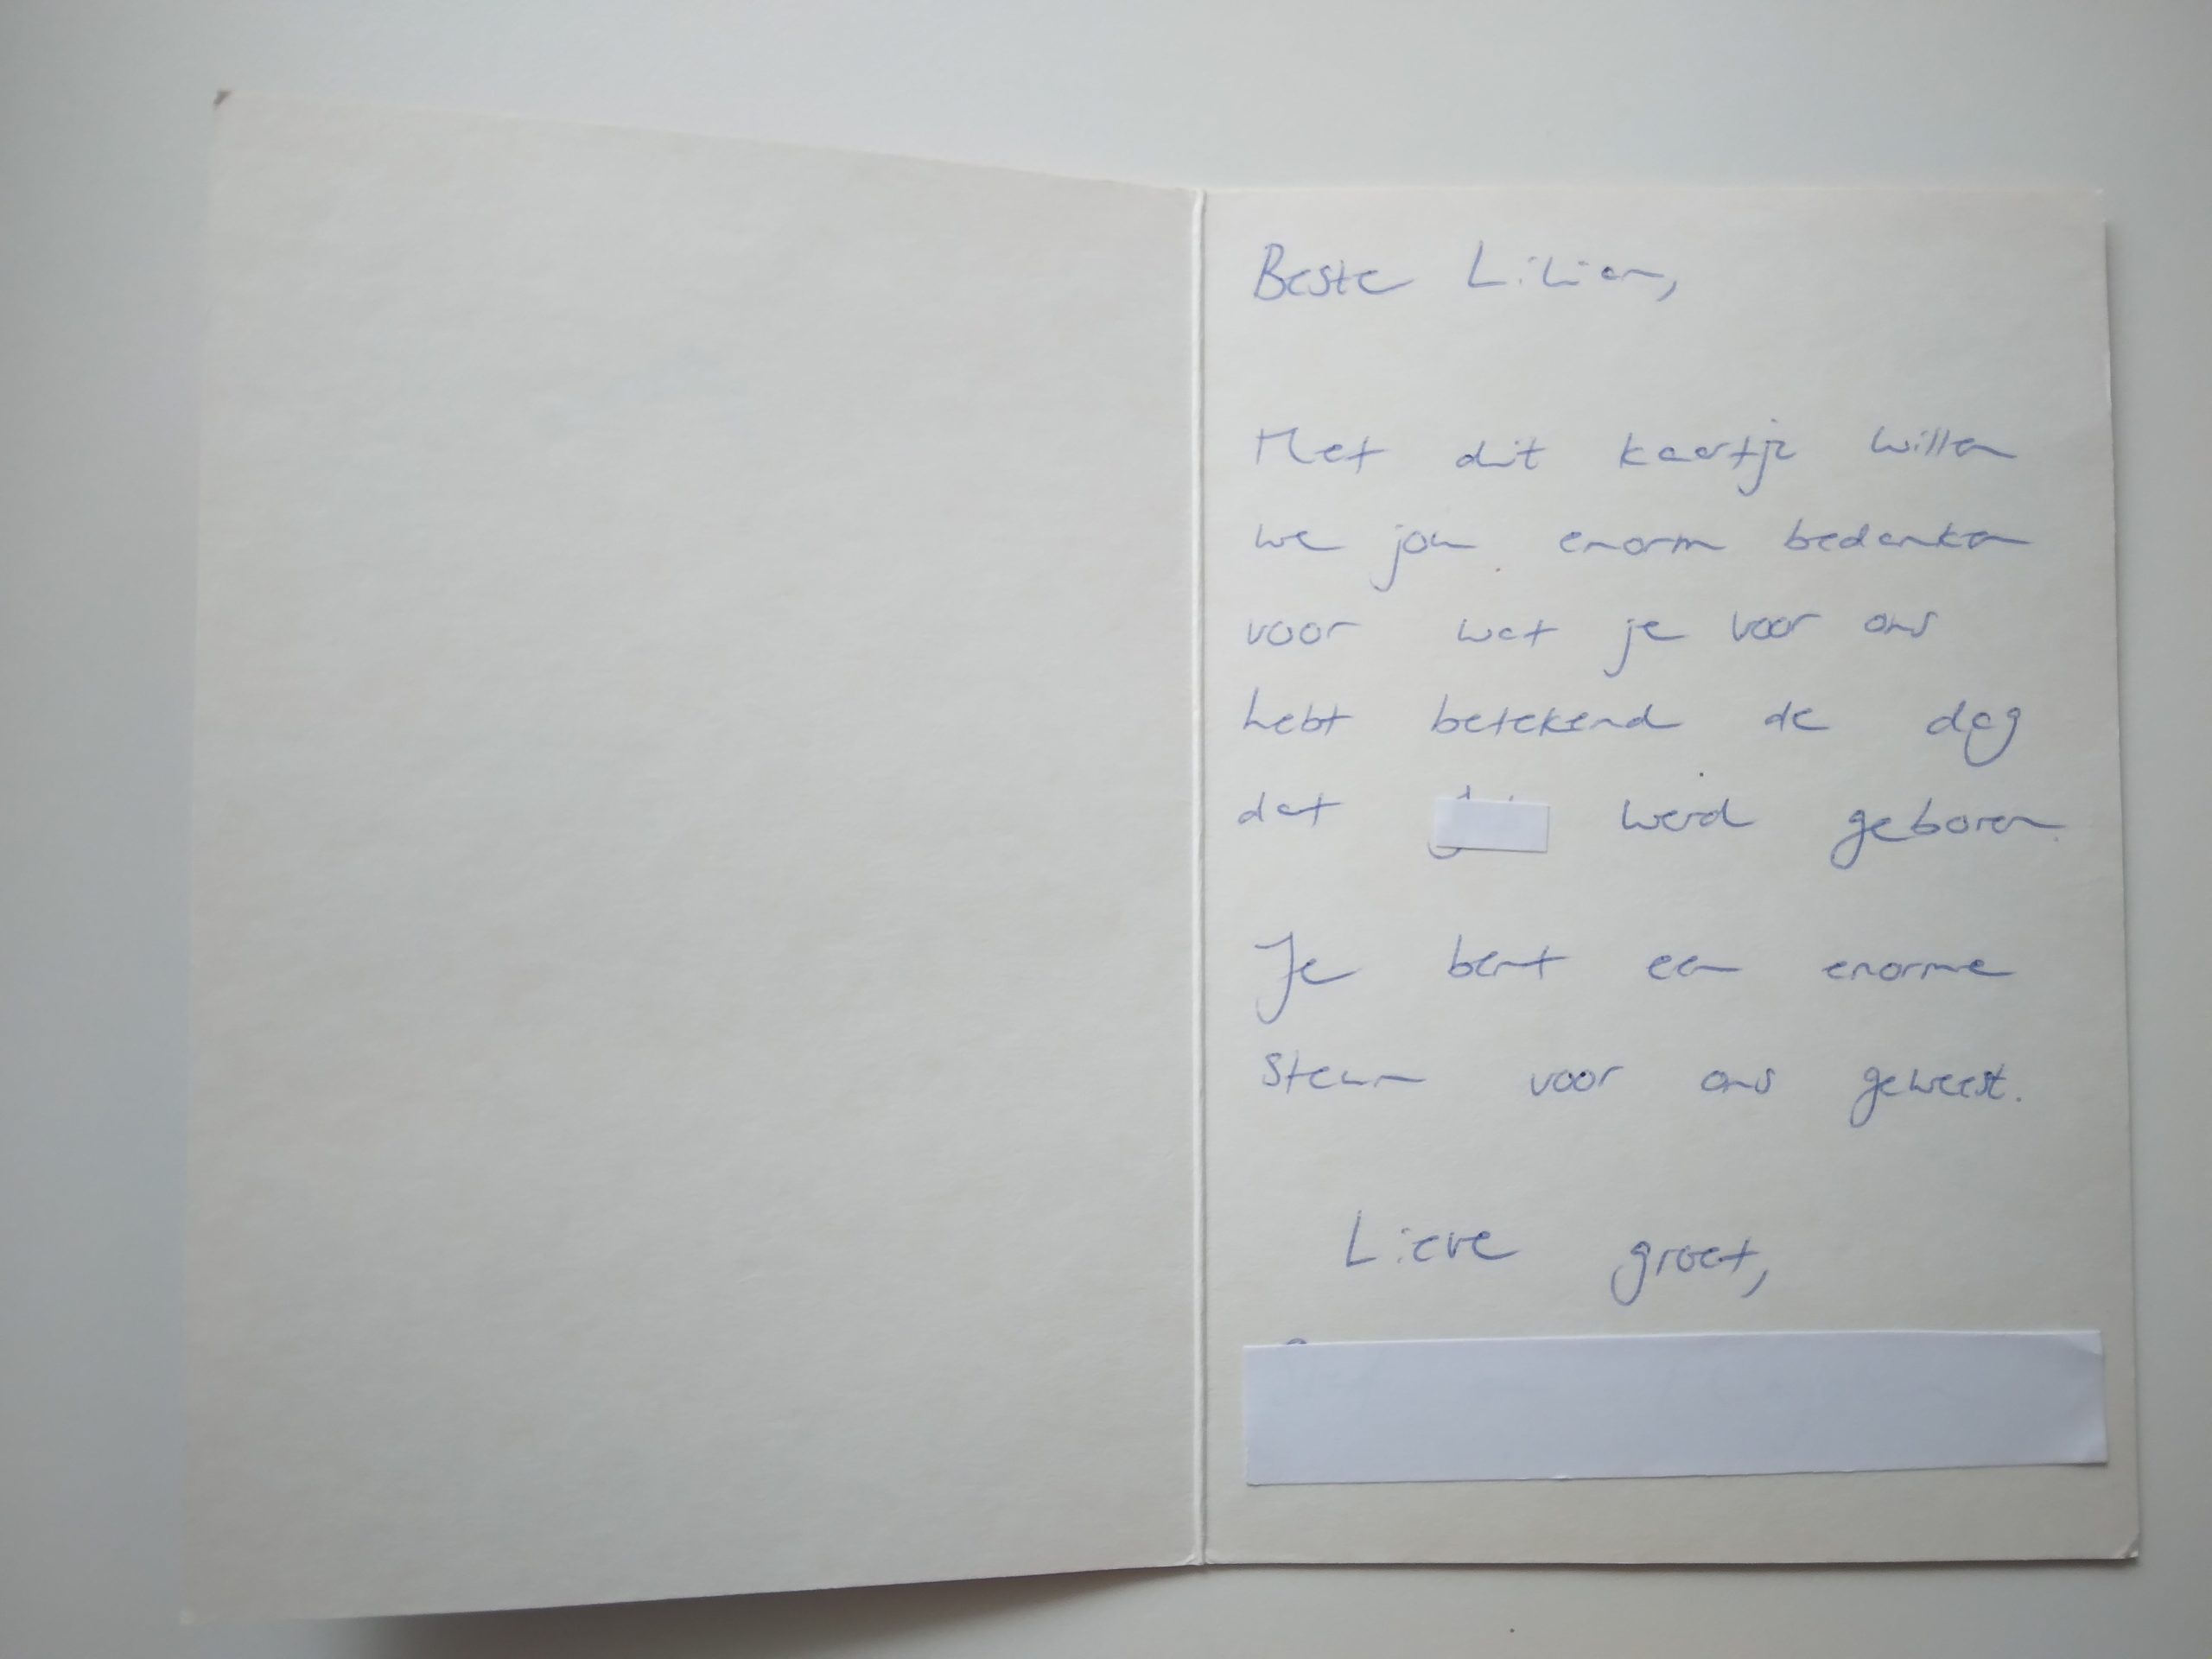 Beste Lilian,
Met dit kaartje willen
we jou enorm bedanken
voor wat je voor ons
hebt betekend de dag
dat werd geboren.
Je bent een enorme
steun voor ons geweest.
Lieve groet,